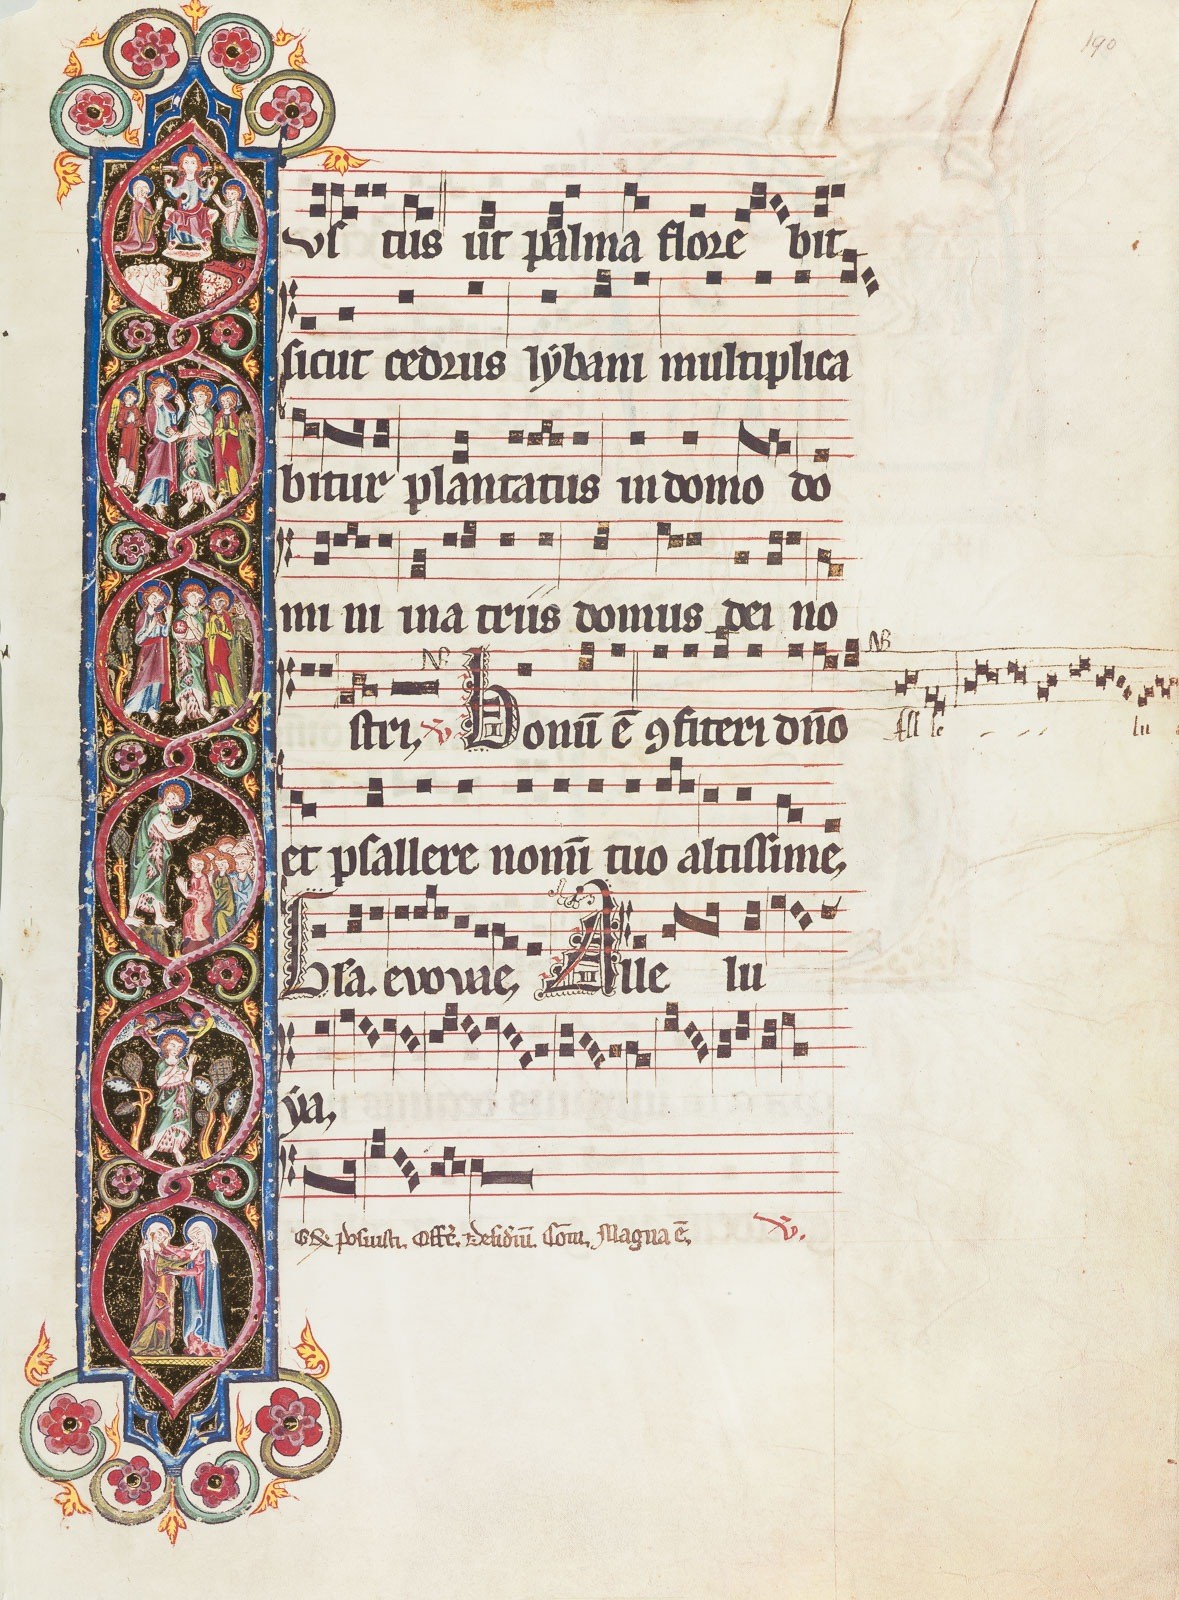 190
vſ tus ut palma flore bit
sicut cedrus lẏbani multiplica
bitur plantatus in domo do
mi ni in a triis domus dei no
stri, ℣ Bonū ē ꝯfiteri dn̄o
NB
NB
All le lu
et psallere nomī tuo altissime,
Gl̄a. evovae, Alle lu
ẏa,
Posuisti. Offr̄. Desideriū. Com̄. Magna ē. ℣.